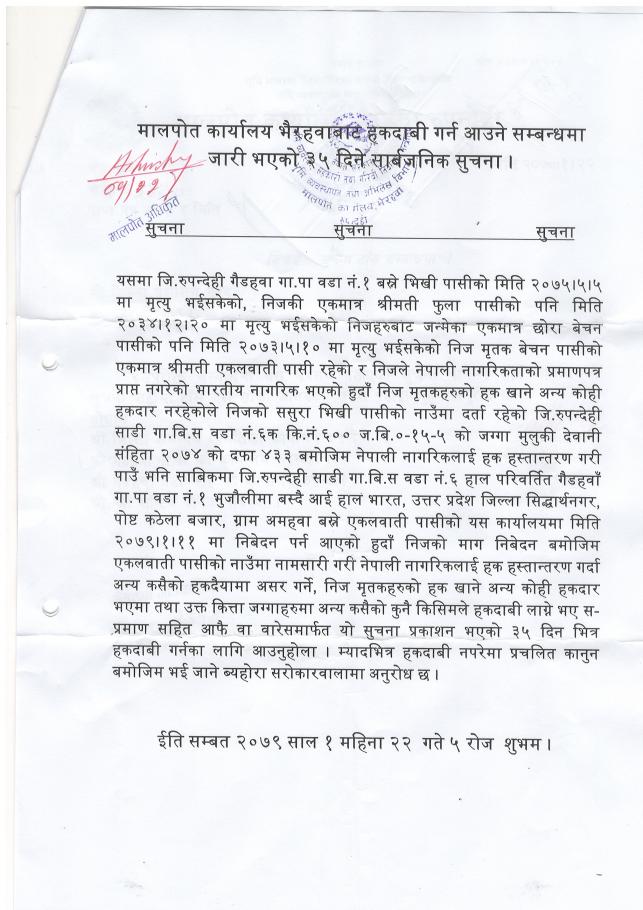 मालपोत कार्यालय भैरहवाबाट हकदाबी गर्न आउने सम्बन्धमा
जारी भएको ३५ दिने सार्बजनिक सुचना ।
मालपोत अधिकृत
सुचना सुचना सुचना
यसमा जि.रुपन्देही गैडहवा गा.पा वडा नं.१ बस्ने भिखी पासीको मिति २०७५।५।५
मा मृत्यु भईसकेको, निजकी एकमात्र श्रीमती फुला पासीको पनि मिति
२०३४।१२।२० मा मृत्यु भईसकेको निजहरुबाट जन्मेका एकमात्र छोरा बेचन
पासीको पनि मिति २०७३।५।१० मा मृत्यु भईसकेको निज मृतक बेचन पासीको
एकमात्र श्रीमती एकलवाती पासी रहेको र निजले नेपाली नागरिकताको प्रमाणपत्र
प्राप्त नगरेको भारतीय नागरिक भएको हुदाँ निज मृतकहरुको हक खाने अन्य कोही
हकदार नरहेकोले निजको ससुरा भिखी पासीको नाउँमा दर्ता रहेको जि.रुपन्देही
साडी गा.बि.स वडा नं.६क कि.नं.६०० ज.बि.०-१५-५ को जग्गा मुलुकी देवानी
संहिता २०७४ को दफा ४३३ बमोजिम नेपाली नागरिकलाई हक हस्तान्तरण गरी
पाउँ भनि साबिकमा जि.रुपन्देही साडी गा.बि.स वडा नं.६ हाल परिवर्तित गैडहवाँ
गा.पा वडा नं.१ भुजौलीमा बस्दै आई हाल भारत, उत्तर प्रदेश जिल्ला सिद्धार्थनगर,
पोष्ट कठेला बजार, ग्राम अमहवा बस्ने एकलवाती पासीको यस कार्यालयमा मिति
२०७९।१।११ मा निबेदन पर्न आएको हुदाँ निजको माग निबेदन बमोजिम
एकलवाती पासीको नाउँमा नामसारी गरी नेपाली नागरिकलाई हक हस्तान्तरण गर्दा
अन्य कसैको हकदैयामा असर गर्ने, निज मृतकहरुको हक खाने अन्य कोही हकदार
भएमा तथा उक्त कित्ता जग्गाहरुमा अन्य कसैको कुनै किसिमले हकदाबी लाग्ने भए स-
प्रमाण सहित आफै वा वारेसमार्फत यो सुचना प्रकाशन भएको ३५ दिन भित्र
हकदाबी गर्नका लागि आउनुहोला । म्यादभित्र हकदाबी नपरेमा प्रचलित कानुन
बमोजिम भई जाने ब्यहोरा सरोकारवालामा अनुरोध छ ।
ईति सम्बत २०७९ साल १ महिना २२ गते ५ रोज शुभम ।